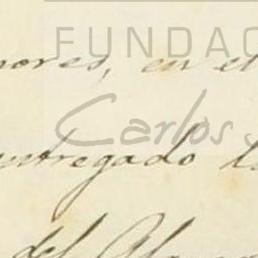 FUNDAC
nores, en el
Carlos
ntregado la
del